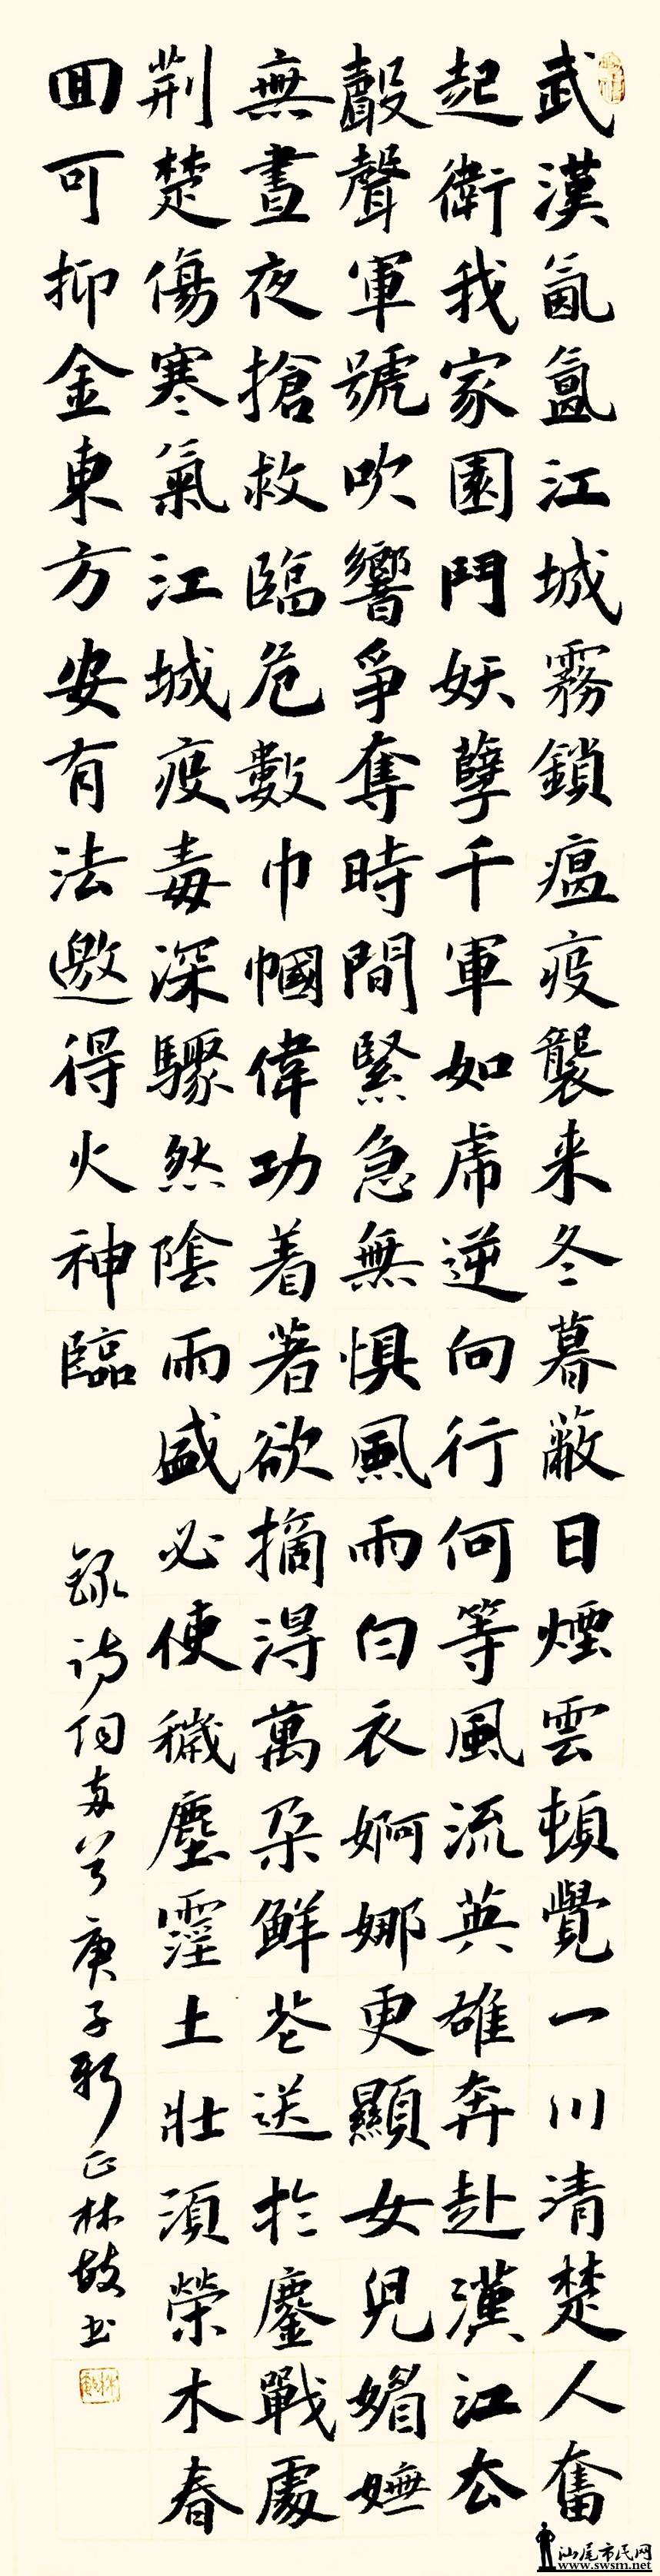 武漢氤氳江城霧鎖瘟疫襲来冬暮蔽日煙雲頓覺一川清楚人奮
起衛我家園鬥妖孽千軍如虎逆向行何等風流英雄奔赴漢江厺
鼓聲軍號吹響爭奪時間緊急無懼風雨白衣婀娜更顯女兒媚嫵
無晝夜搶救臨危數巾幗偉功着著欲摘得萬朵鮮花送於鏖戰處
荆楚傷寒氣江城疫毒深驟然陰雨盛必使穢塵霪土壯須榮木春
回可抑金東方安有法邀得火神臨
錄詩詞两首庚子新正林書
汕尾市民网
www.swsm.net